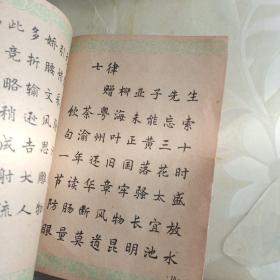 此多娇引
竞折腰惜
略输文
稍逊风
成吉思
射大雕
流人
七律
赠柳亚子先生
饮茶粤海未能忘索
句渝州叶正黄三十
一年还旧国落花时
节读华章牢骚太盛
防肠断风物长宜放
眼量莫道昆明池水